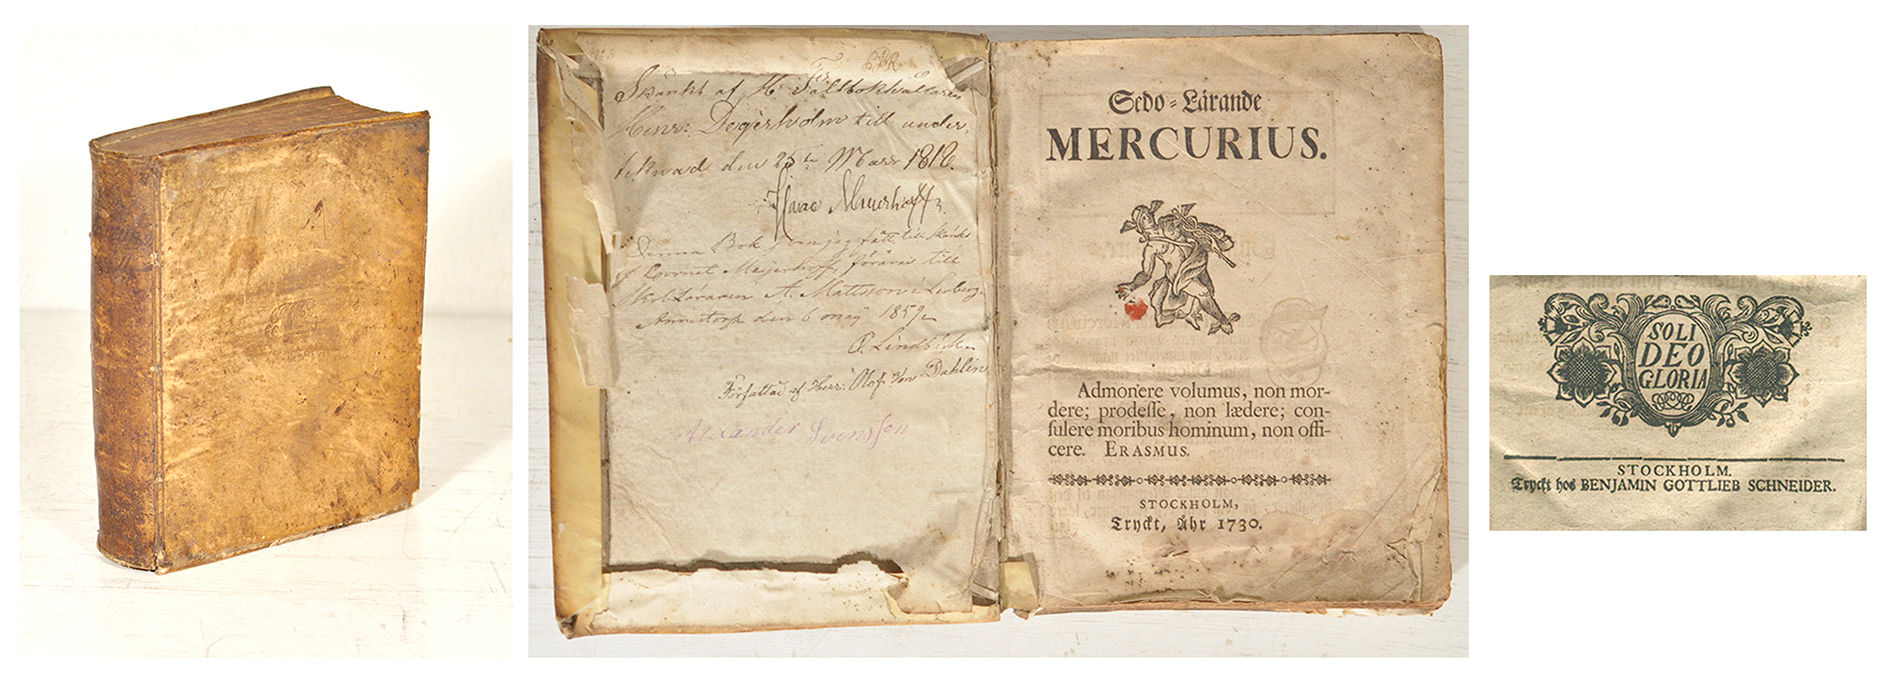 Skänkt af Hr Fältbokhållaren
Henr: Degerholm till under,
teknad den 25te Mars 1810.
Isaac
Denna Bok som jag fått till skänks
af Cornet Meijerhoff, föräras till
Skol Läraren A. Mattsson i
den 6 maij 1859
Författad af Herr: Olof Von Dahlin
Alexander Svensson
Sedo-Lärande
MERCURIUS.
Admonere volumus, non mor-
dere; prodesse, non lædere; con-
sulere moribus hominum, non offi-
cere. ERASMUS.
STOCKHOLM,
Tryckt, Åhr 1730.
SOLI
DEO
GLORIA
STOCKHOLM.
Tryckt hos BENJAMIN GOTTLIEB SCHNEIDER.